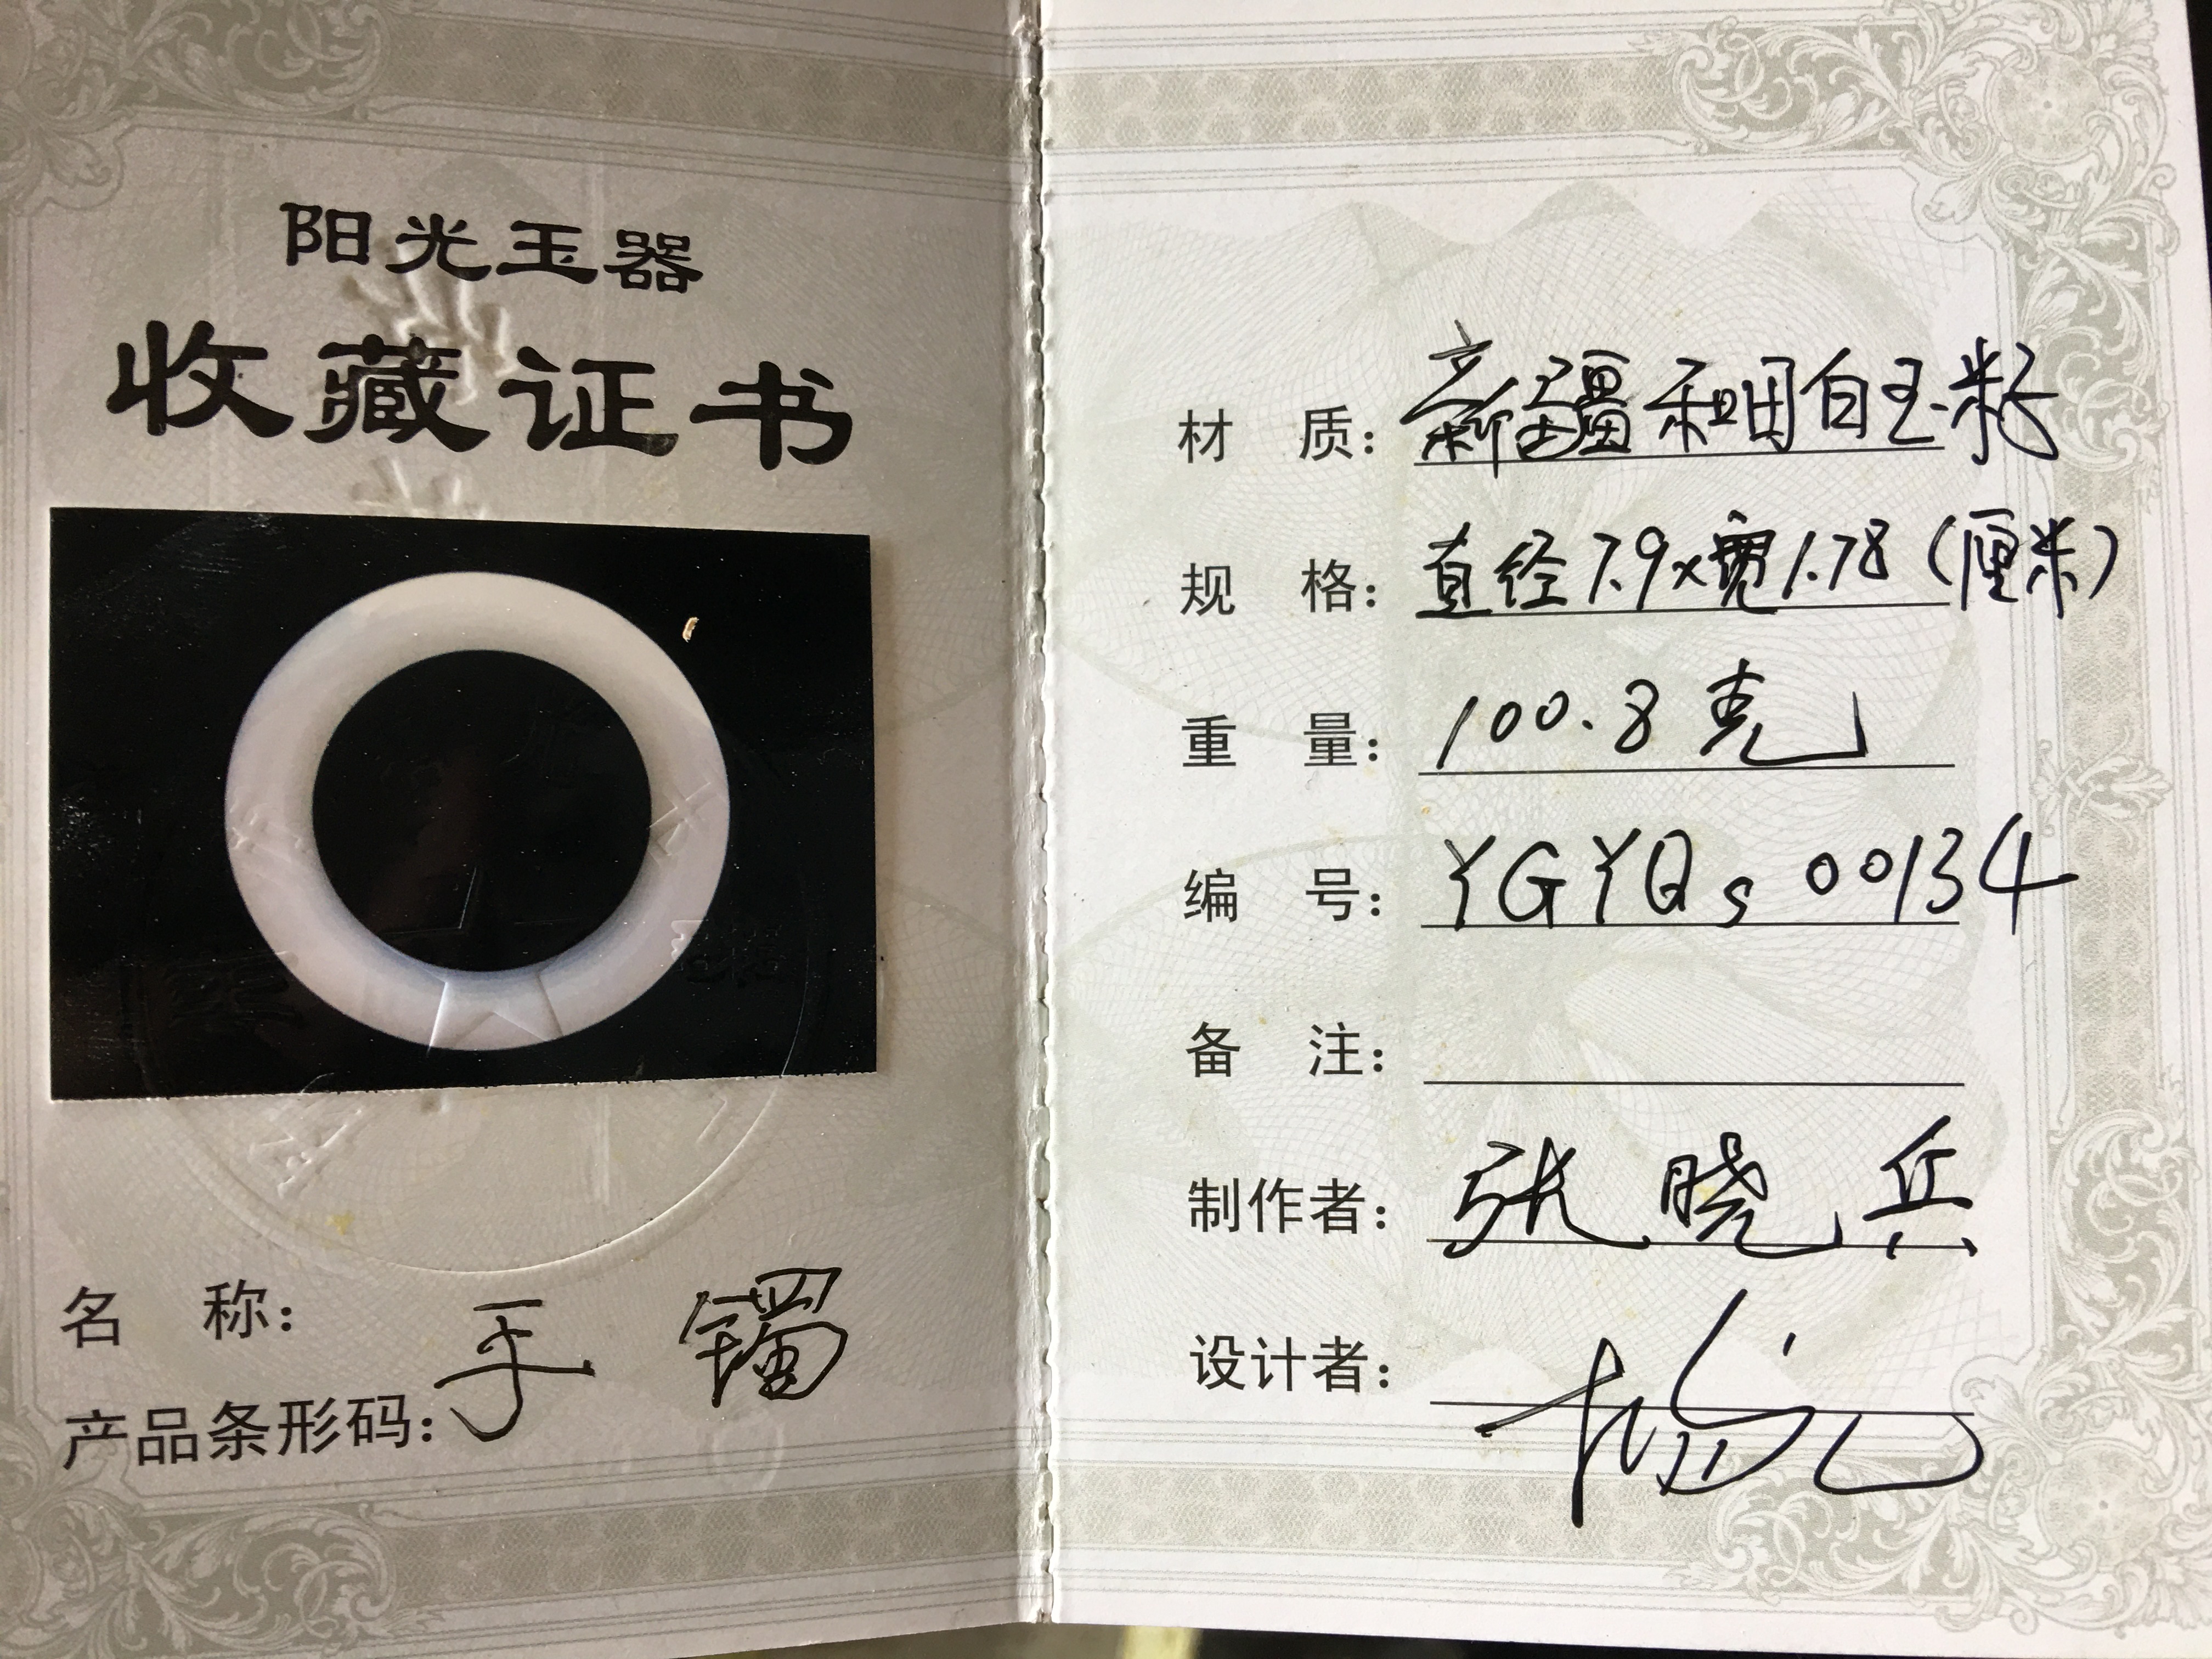 阳光玉器
收藏证书
名 称：手镯
产品条形码：
材 质：新疆和田白玉籽
规 格：直径7.9x宽1.78(厘米)
重 量：100.8克
编 号：YGYQs00134
备 注：
制作者：张晓兵
设计者：